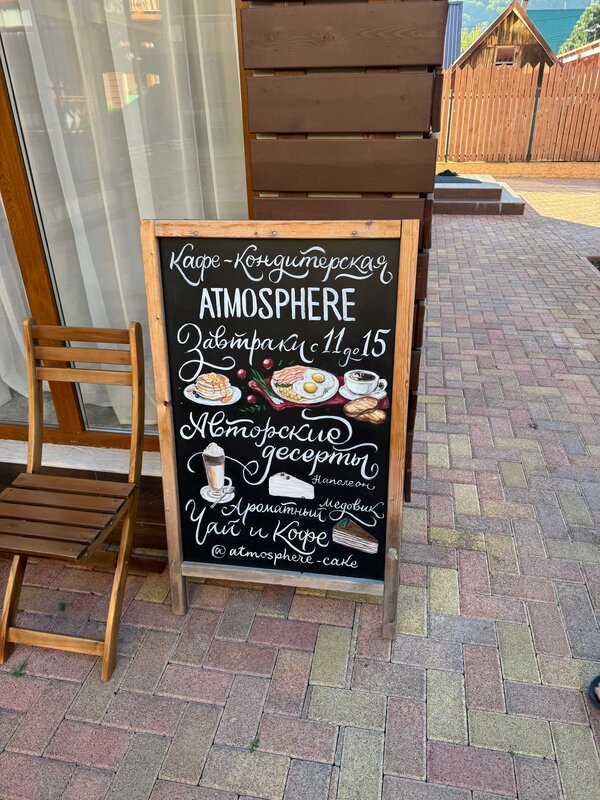 Кафе-Кондитерская
ATMOSPHERE
Завтраки с 11 до 15
Авторские
десерты
Наполеон
Медовик
Ароматный
Чай и Кофе
@atmosphere-cake